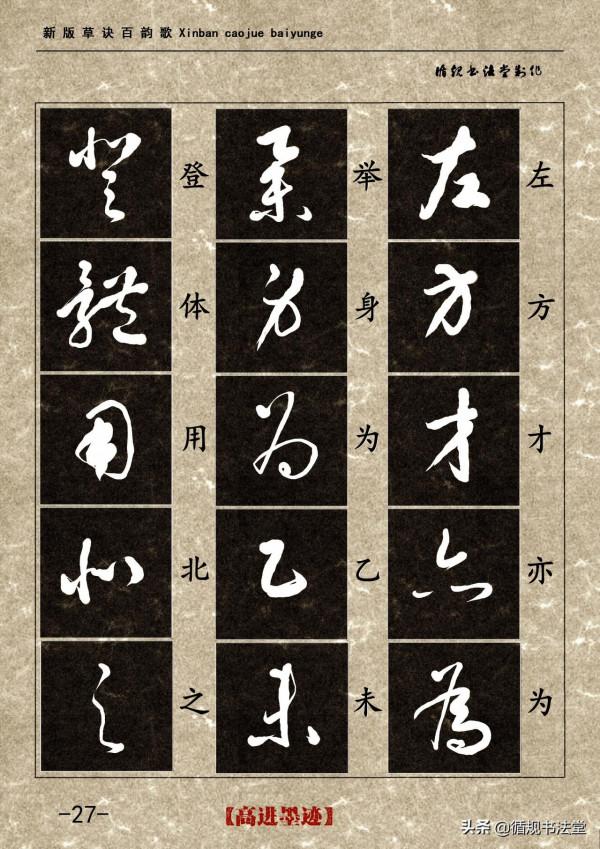 新版草诀百韵歌Xinban caojue baiyunge
循规书法堂制作
左方才亦为
举身为乙未
登体用北之
-27-
【高进墨迹】
头条@循规书法堂